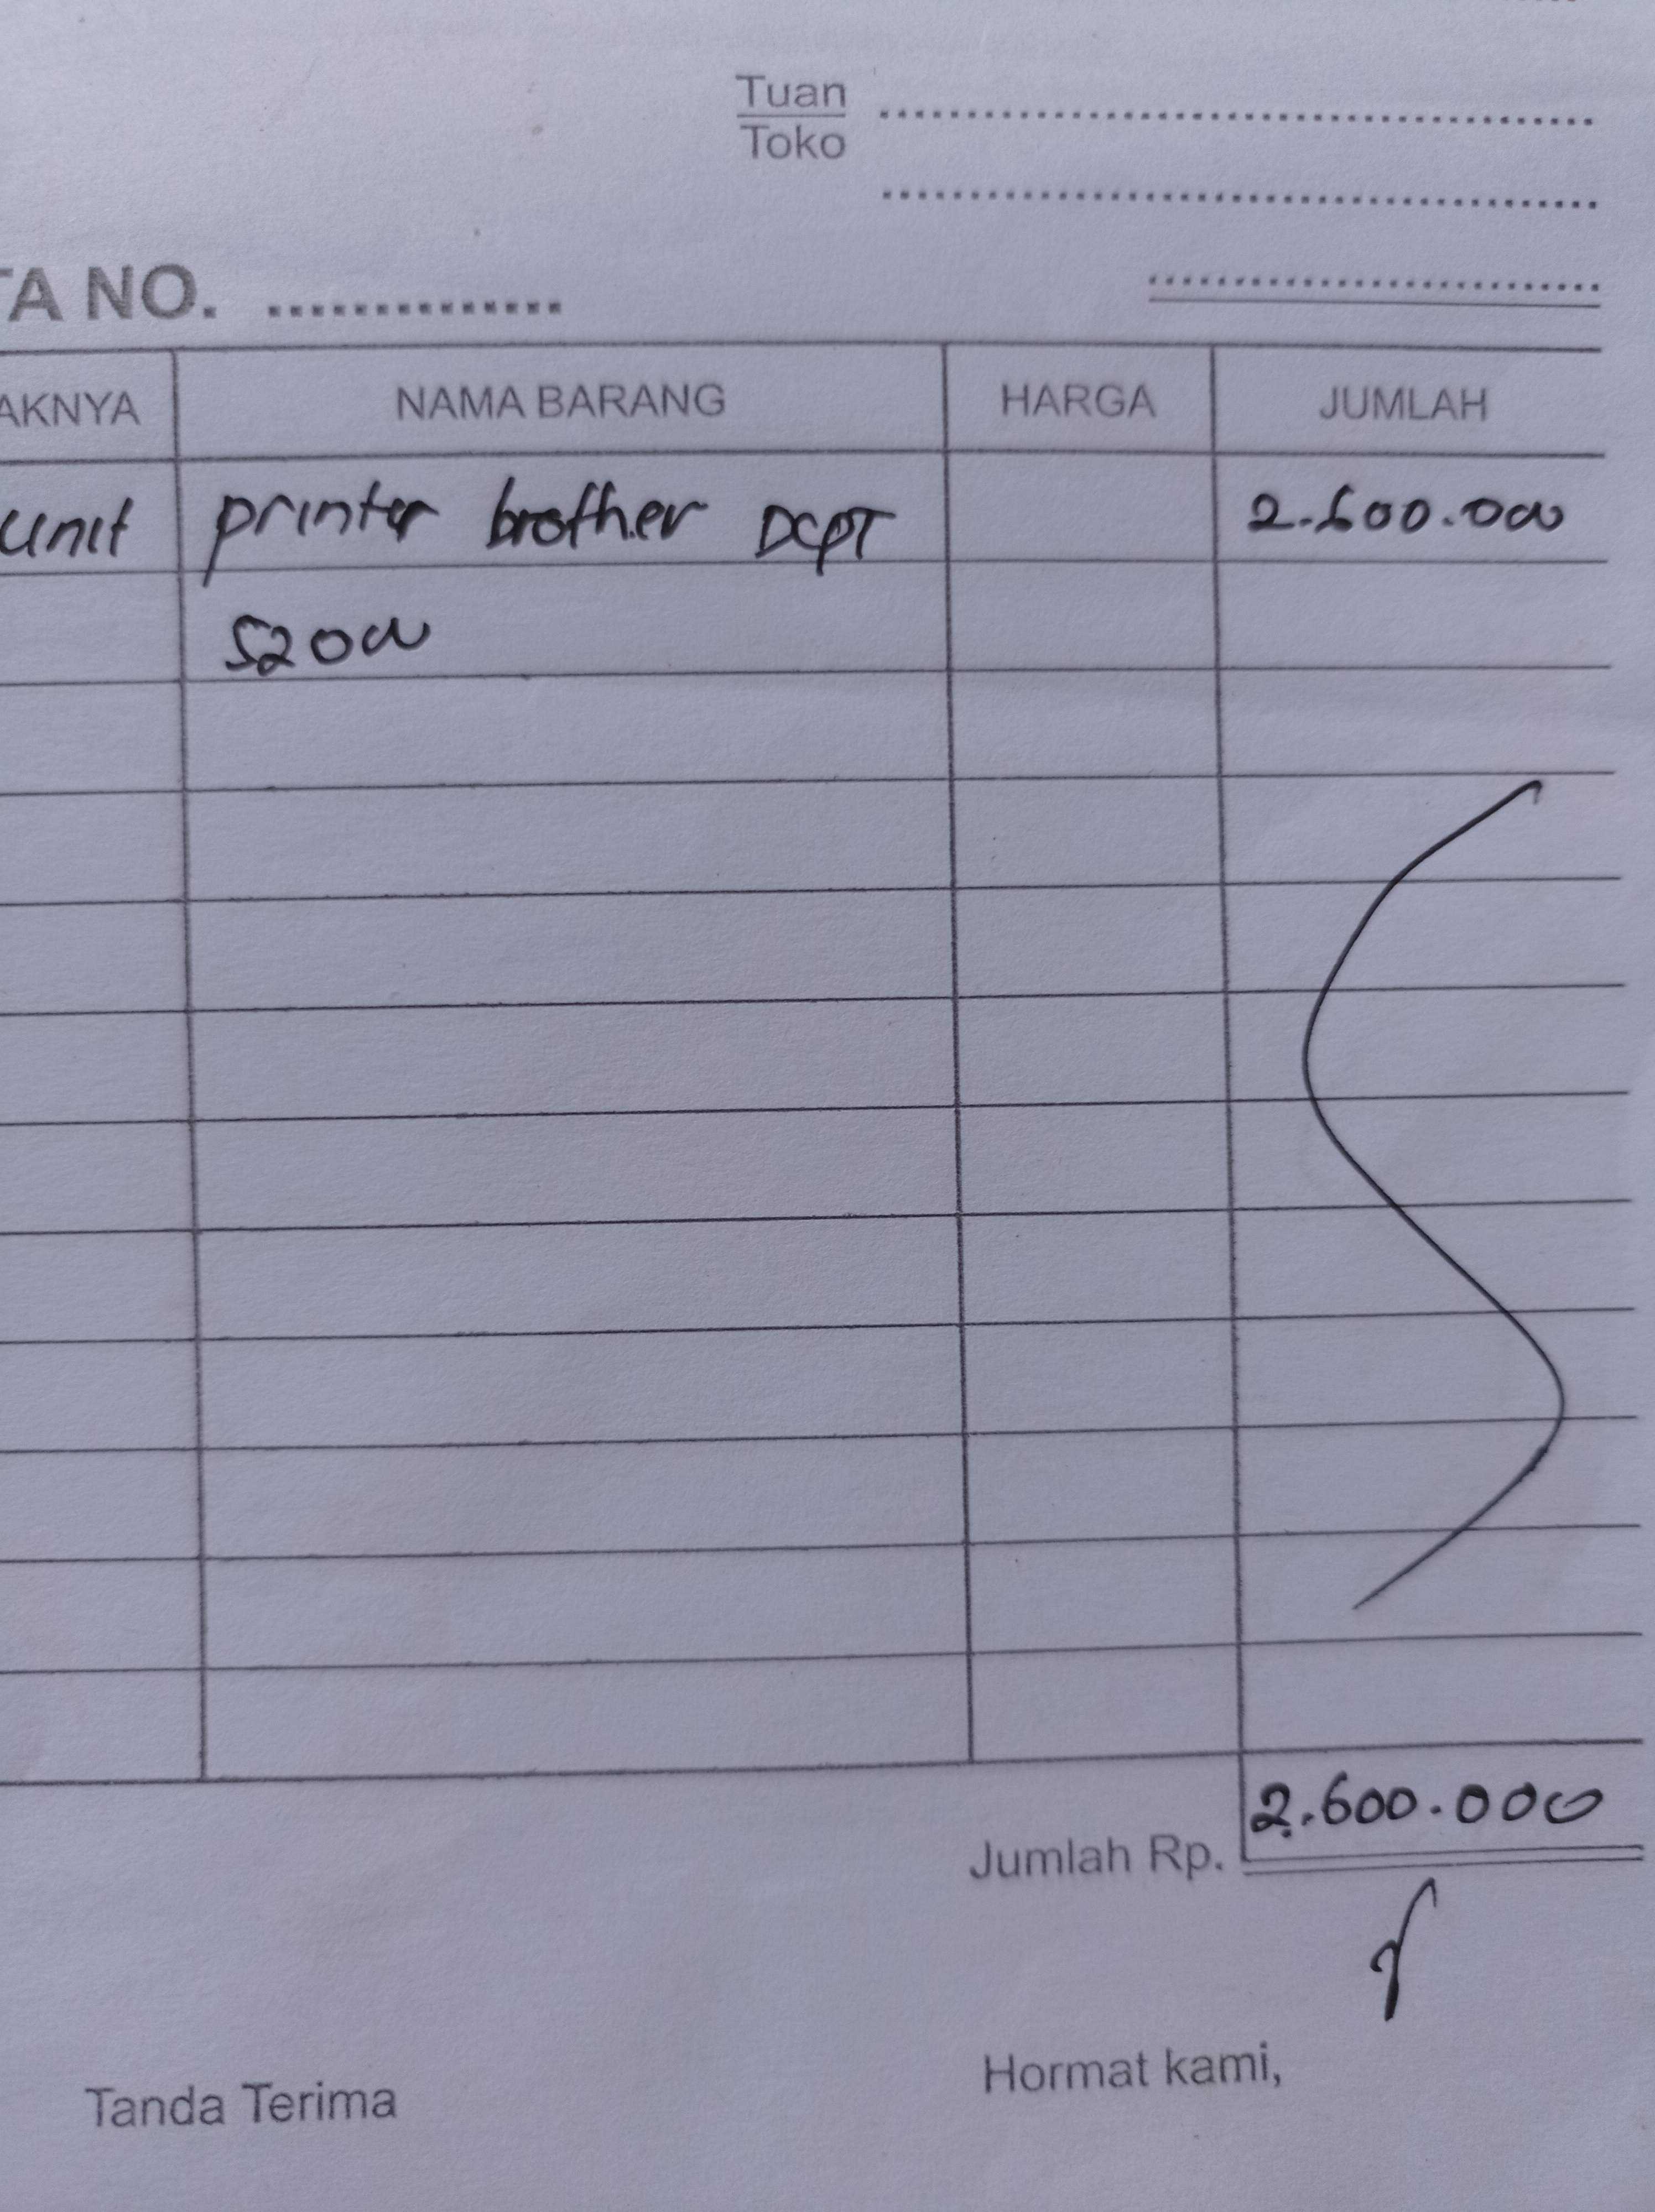 Tuan
Toko
TA NO. ..............
AKNYA NAMA BARANG HARGA JUMLAH
unit printer brother DCPT 2.600.000
520W
Jumlah Rp. 2.600.000
Tanda Terima Hormat kami,